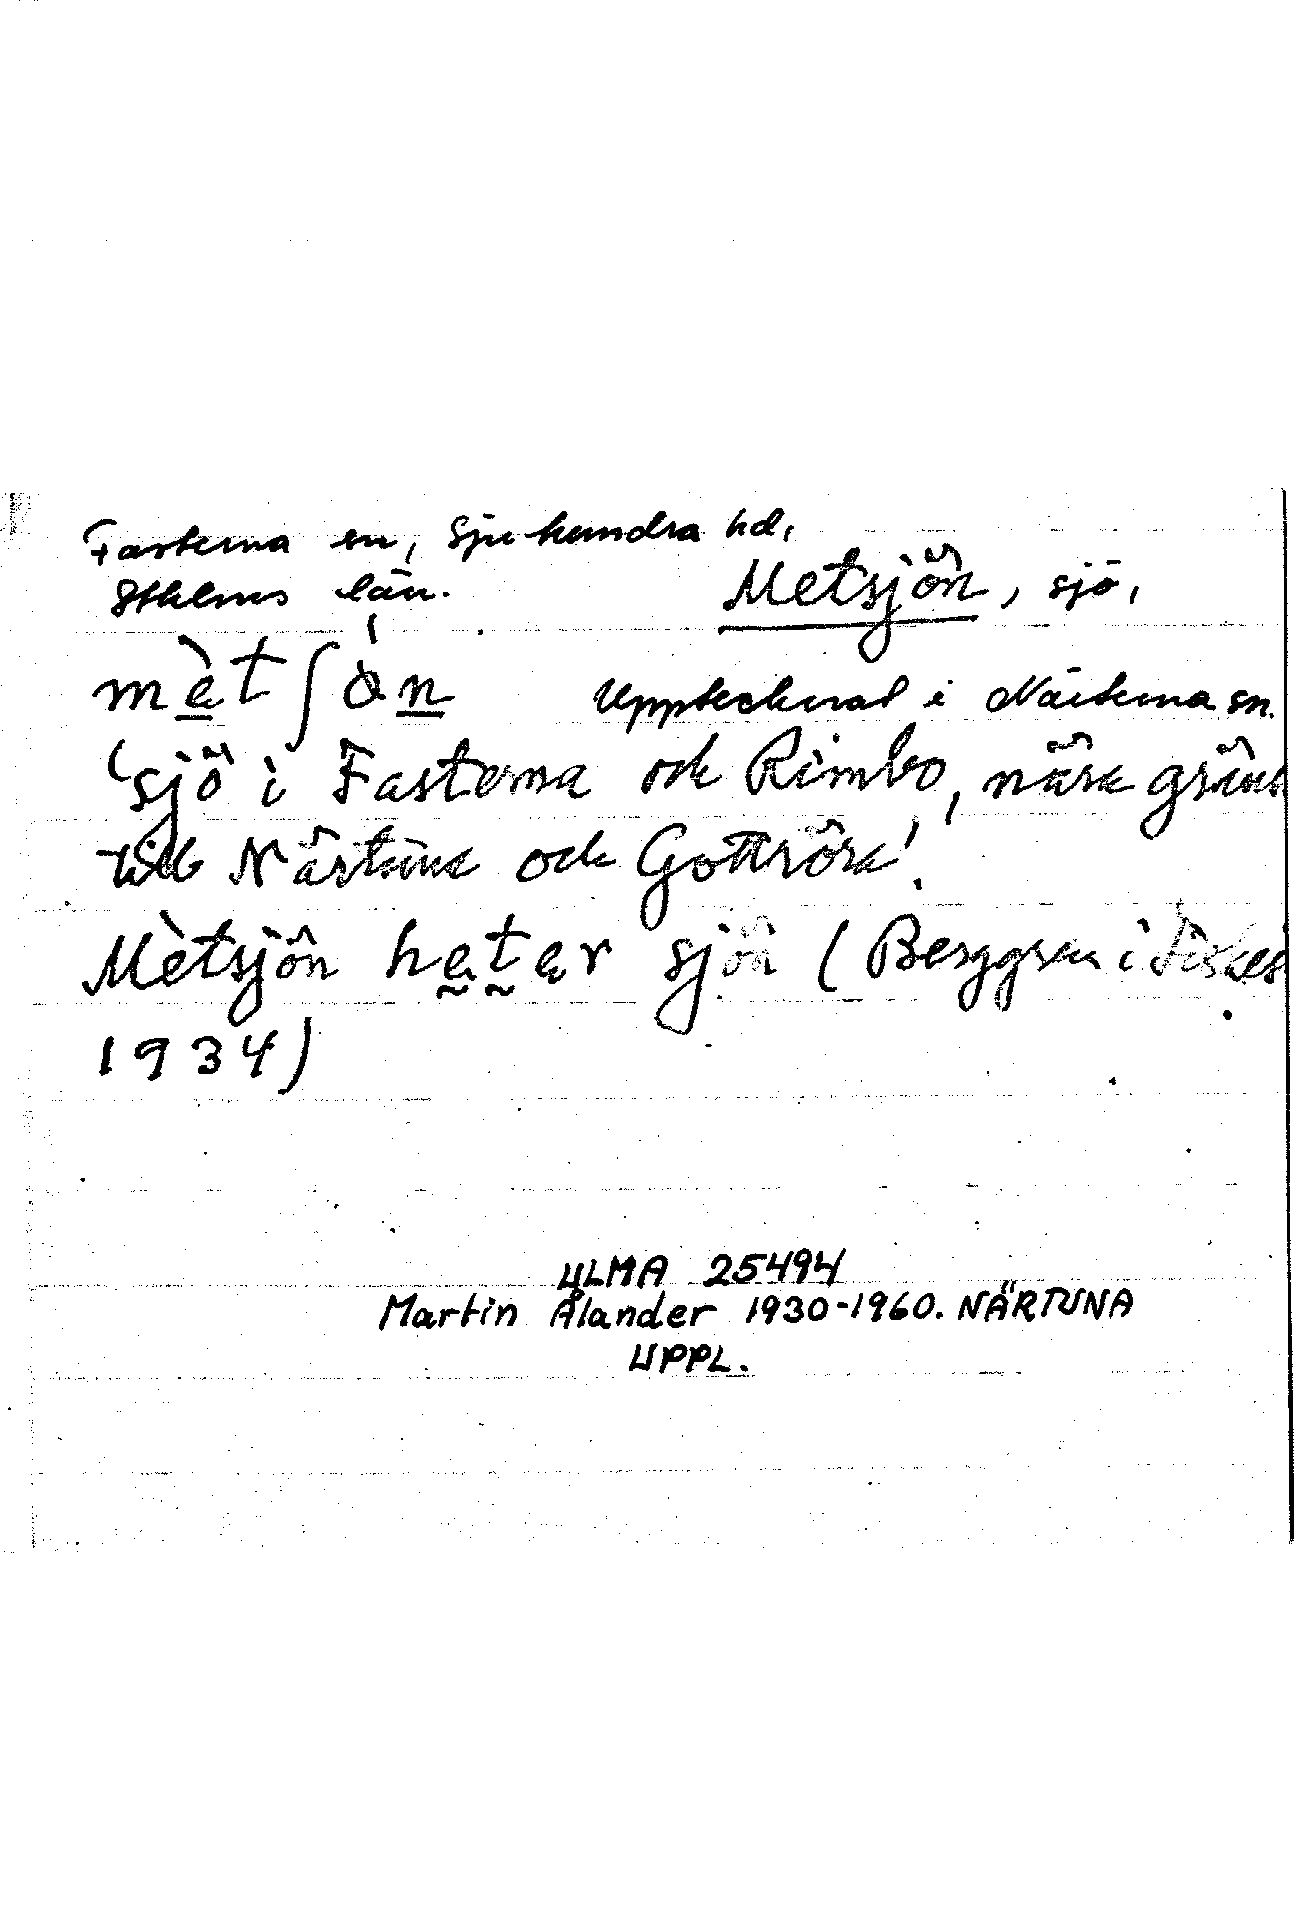 Fasterna sn, Sjuhundra hd,
Sthlms län.
Metsjön, sjö,
mètʃön Upptecknat i Närtuna sn.
'sjö i Fasterna och Rimbo, nära gräns
till Närtuna och Gottröra'.
Mètsjön heter sjön (Berggren i
1934)
ULMA 25494
Martin Ålander 1930-1960. NÄRTUNA
UPPL.